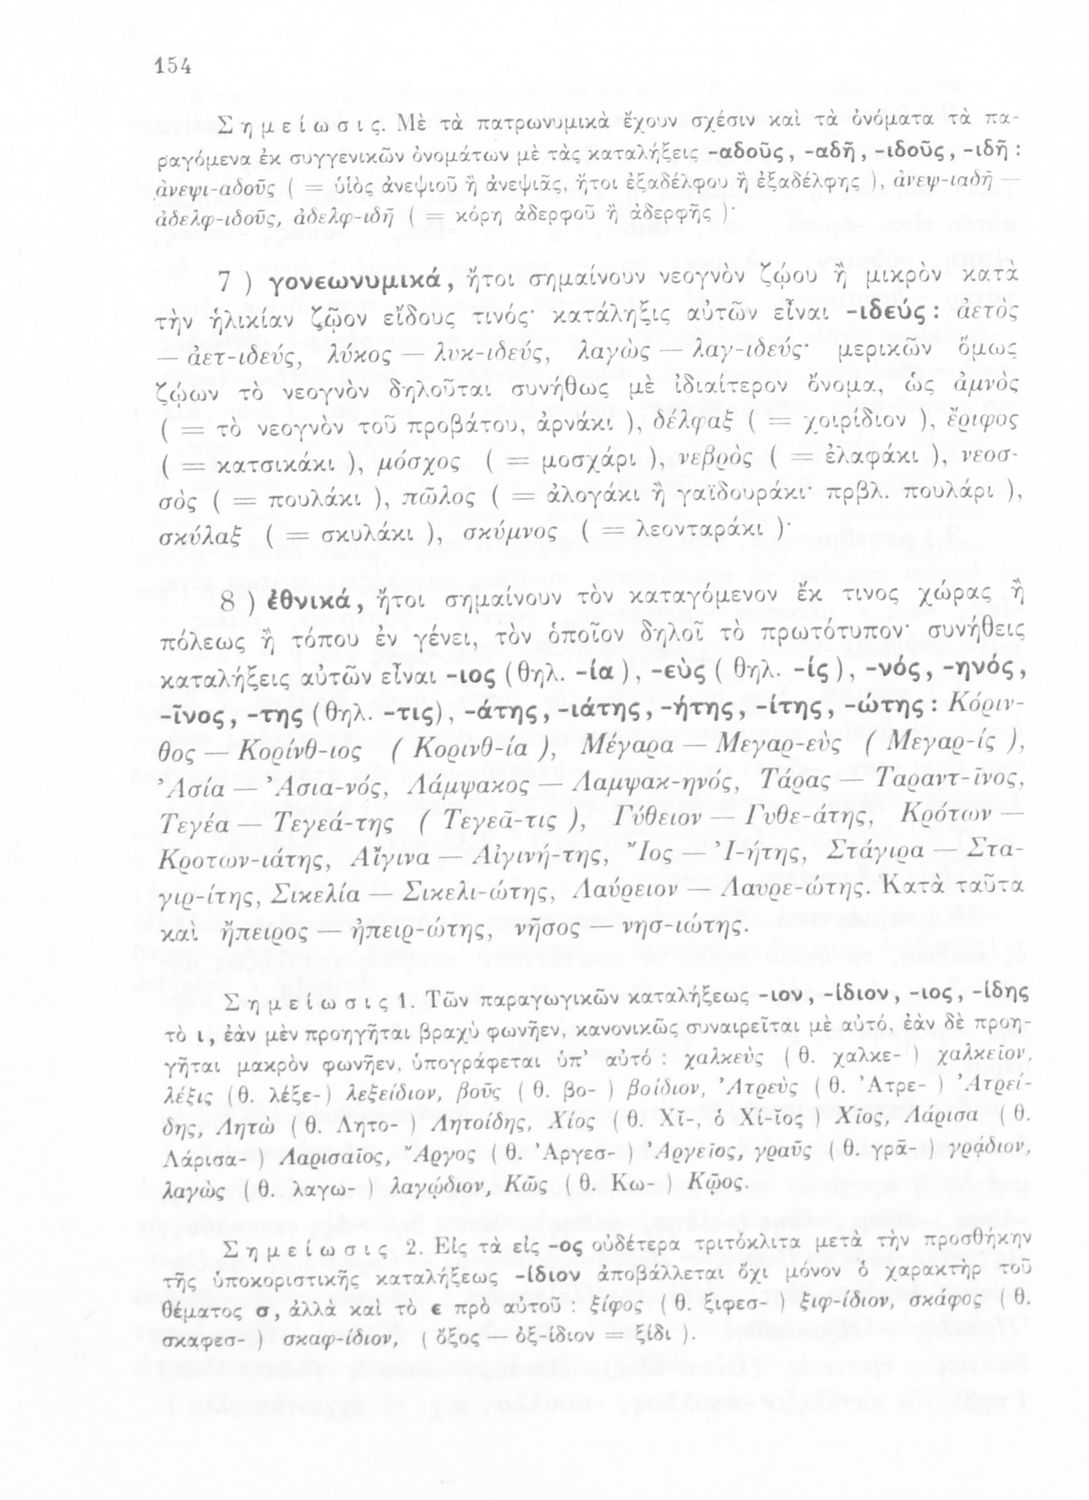 154
Σημείωσις. Μὲ τὰ πατρωνυμικὰ ἔχουν σχέσιν καὶ τὰ ὀνόματα τὰ πα-
ραγόμενα ἐκ συγγενικῶν ὀνομάτων μὲ τὰς καταλήξεις -αδοῦς, -αδῆ, -ιδοῦς, -ιδῆ :
ἀνεψι-αδοῦς ( = υἱὸς ἀνεψιοῦ ἢ ἀνεψιᾶς, ἤτοι ἐξαδέλφου ἢ ἐξαδέλφης ), ἀνεψ-ιαδῆ —
ἀδελφ-ιδοῦς, ἀδελφ-ιδῆ ( = κόρη ἀδερφοῦ ἢ ἀδερφῆς )·
7 ) γονεωνυμικά, ἤτοι σημαίνουν νεογνὸν ζῴου ἢ μικρὸν κατὰ
τὴν ἡλικίαν ζῷον εἴδους τινός· κατάληξις αὐτῶν εἶναι -ιδεύς : ἀετὸς
— ἀετ-ιδεύς, λύκος — λυκ-ιδεύς, λαγὼς — λαγ-ιδεύς· μερικῶν ὅμως
ζῴων τὸ νεογνὸν δηλοῦται συνήθως μὲ ἰδιαίτερον ὄνομα, ὡς ἀμνὸς
( = τὸ νεογνὸν τοῦ προβάτου, ἀρνάκι ), δέλφαξ ( = χοιρίδιον ), ἔριφος
( = κατσικάκι ), μόσχος ( = μοσχάρι ), νεβρὸς ( = ἐλαφάκι ), νεοσ-
σὸς ( = πουλάκι ), πῶλος ( = ἀλογάκι ἢ γαϊδουράκι· πρβλ. πουλάρι ),
σκύλαξ ( = σκυλάκι ), σκύμνος ( = λεονταράκι )·
8 ) ἐθνικά, ἤτοι σημαίνουν τὸν καταγόμενον ἔκ τινος χώρας ἢ
πόλεως ἢ τόπου ἐν γένει, τὸν ὁποῖον δηλοῖ τὸ πρωτότυπον· συνήθεις
καταλήξεις αὐτῶν εἶναι -ιος (θηλ. -ία ), -εὺς ( θηλ. -ίς ), -νός, -ηνός,
-ῖνος, -της (θηλ. -τις), -άτης, -ιάτης, -ήτης, -ίτης, -ώτης : Κόριν-
θος — Κορίνθ-ιος ( Κορινθ-ία ), Μέγαρα — Μεγαρ-εὺς ( Μεγαρ-ίς ),
Ἀσία — Ἀσια-νός, Λάμψακος — Λαμψακ-ηνός, Τάρας — Ταραντ-ῖνος,
Τεγέα — Τεγεά-της ( Τεγεᾶ-τις ), Γύθειον — Γυθε-άτης, Κρότων —
Κροτων-ιάτης, Αἴγινα — Αἰγινή-της, Ἴος — Ἰ-ήτης, Στάγιρα — Στα-
γιρ-ίτης, Σικελία — Σικελι-ώτης, Λαύρειον — Λαυρε-ώτης. Κατὰ ταῦτα
καὶ ἤπειρος — ἠπειρ-ώτης, νῆσος — νησ-ιώτης.
Σημείωσις 1. Τῶν παραγωγικῶν καταλήξεως -ιον, -ίδιον, -ιος, -ίδης
τὸ ι, ἐὰν μὲν προηγῆται βραχὺ φωνῆεν, κανονικῶς συναιρεῖται μὲ αὐτό, ἐὰν δὲ προη-
γῆται μακρὸν φωνῆεν, ὑπογράφεται ὑπ' αὐτό : χαλκεὺς ( θ. χαλκε- ) χαλκεῖον,
λέξις (θ. λέξε-) λεξείδιον, βοῦς ( θ. βο- ) βοίδιον, Ἀτρεὺς ( θ. Ἀτρε- ) Ἀτρεί-
δης, Λητὼ ( θ. Λητο- ) Λητοίδης, Χίος ( θ. Χῐ-, ὁ Χί-ῐος ) Χῖος, Λάρισα ( θ.
Λάρισα- ) Λαρισαῖος, Ἄργος ( θ. Ἀργεσ- ) Ἀργεῖος, γραῦς ( θ. γρᾱ- ) γρᾴδιον,
λαγὼς ( θ. λαγω- ) λαγῴδιον, Κῶς ( θ. Κω- ) Κῷος.
Σημείωσις 2. Εἰς τὰ εἰς -ος οὐδέτερα τριτόκλιτα μετὰ τὴν προσθήκην
τῆς ὑποκοριστικῆς καταλήξεως -ίδιον ἀποβάλλεται ὄχι μόνον ὁ χαρακτὴρ τοῦ
θέματος σ, ἀλλὰ καὶ τὸ ε πρὸ αὐτοῦ : ξίφος ( θ. ξιφεσ- ) ξιφ-ίδιον, σκάφος ( θ.
σκαφεσ- ) σκαφ-ίδιον, ( ὄξος — ὀξ-ίδιον = ξίδι ).